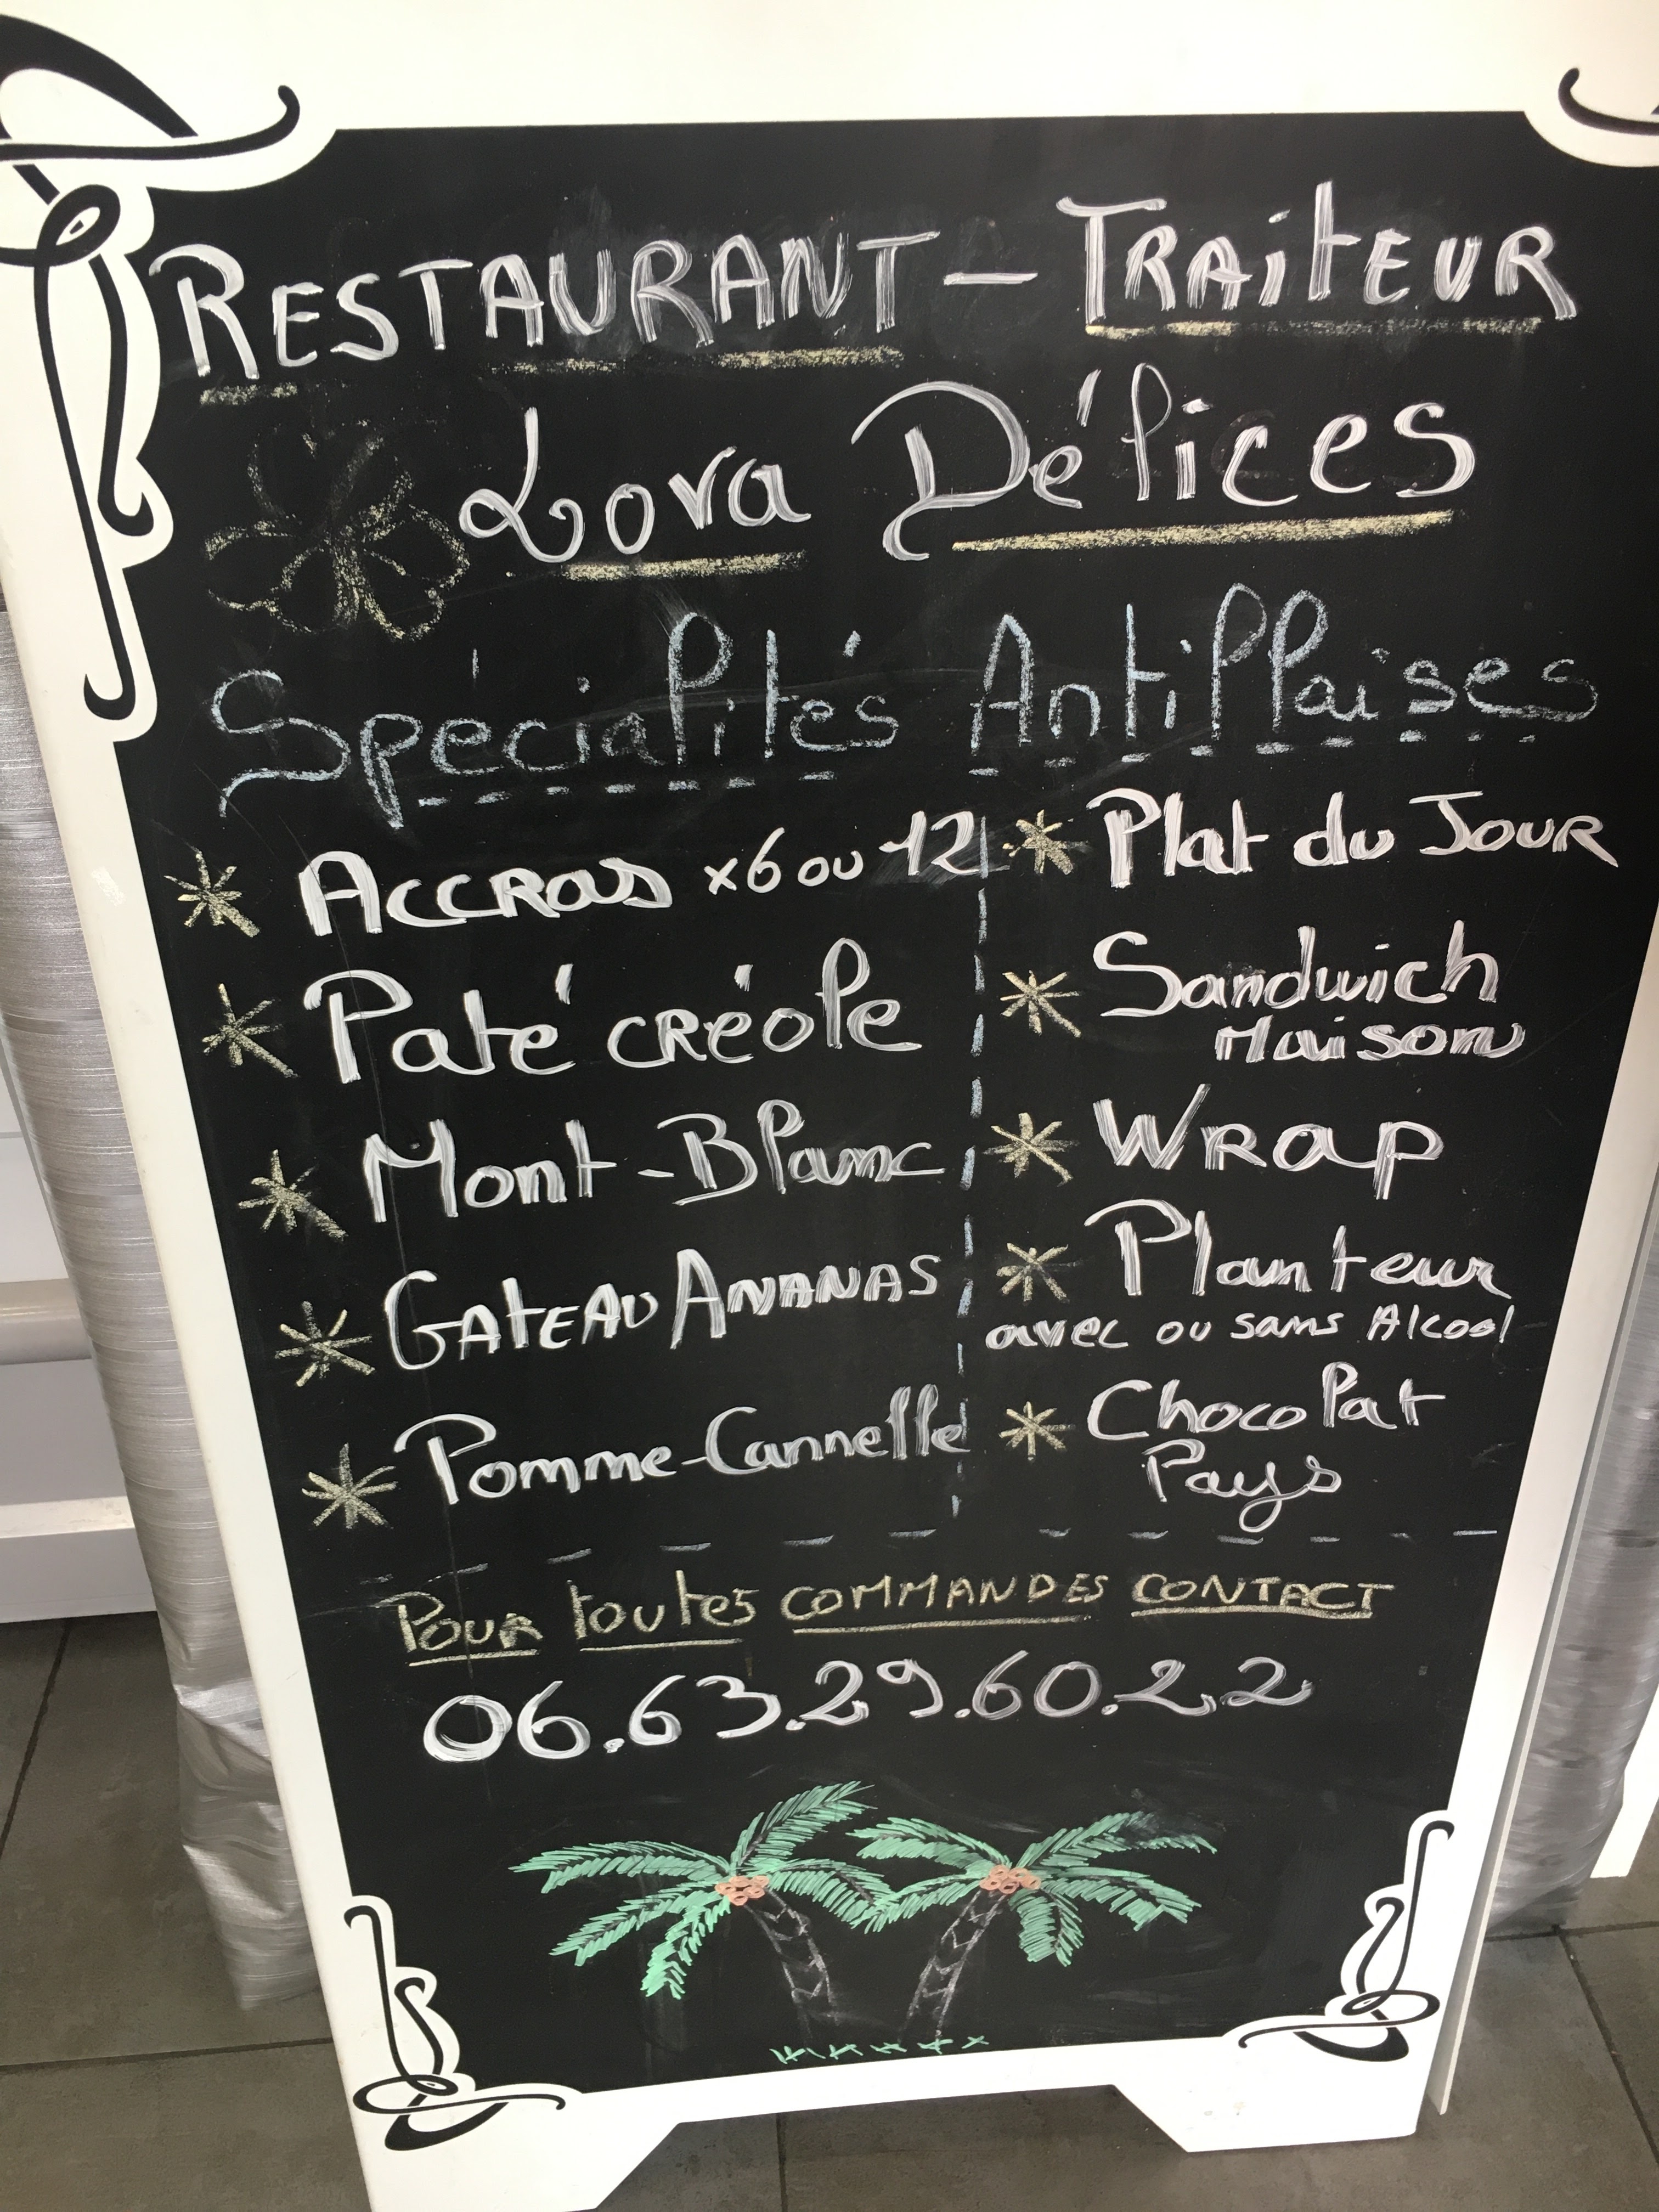 RESTAURANT - TRAiteUR
Lova Délices
Spécialités Antillaises
* ACCRAS x6 ou 12
* Paté créole
* Mont-Blanc
* GATEAU ANANAS
* Pomme-Cannelle
* Plat du Jour
* Sandwich
Maison
* Wrap
* Planteur
avec ou sans Alcool
* Chocolat
Pays
Pour toutes COMMANDES CONTACT
06.63.29.60.22